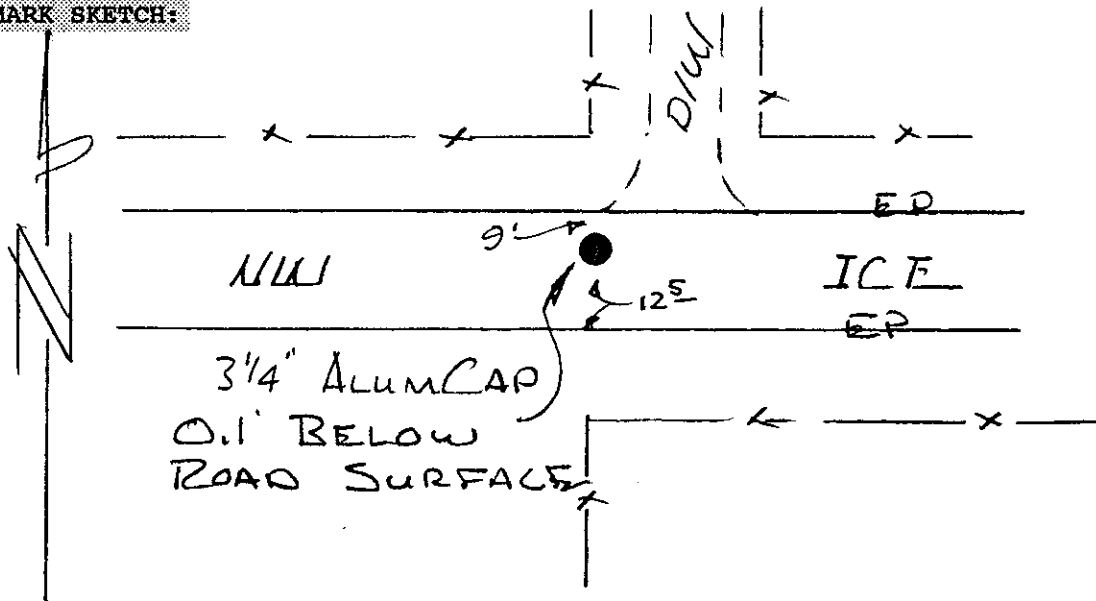 MARK SKETCH:
D/W
EP
9'
NW
ICE
12⁵
EP
N
3 1/4" ALUM CAP
0.1' BELOW
ROAD SURFACE